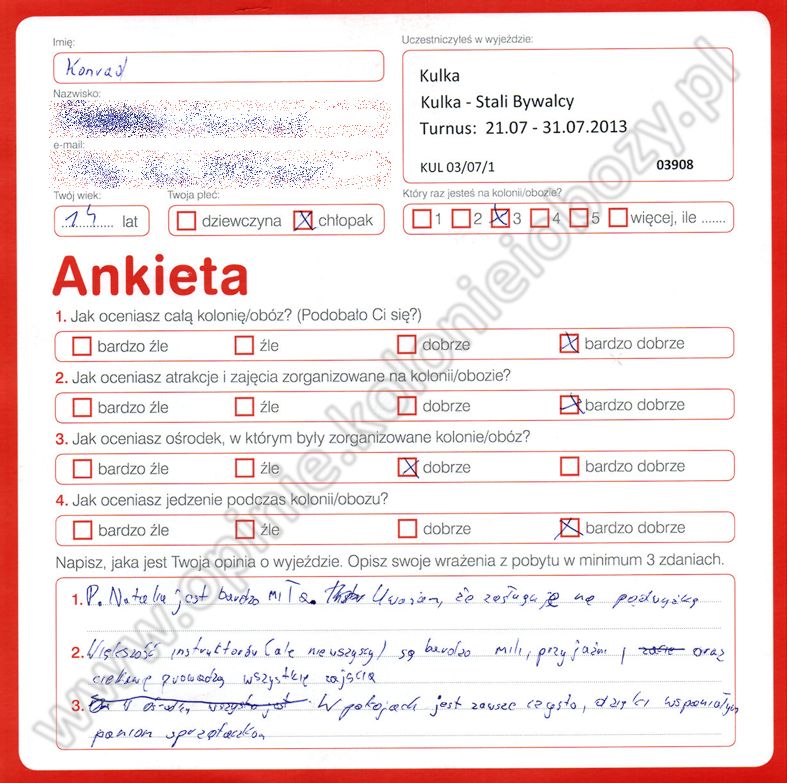 Imię:
Konrad
Uczestniczyłeś w wyjeździe:
Kulka
Kulka - Stali Bywalcy
Turnus: 21.07 - 31.07.2013
KUL 03/07/1 03908
Nazwisko:
e-mail:
Twój wiek:
14 lat
Twoja płeć:
dziewczyna chłopak
Który raz jesteś na kolonii/obozie?
1 2 3 4 5 więcej, ile .......
Ankieta
1. Jak oceniasz całą kolonię/obóz? (Podobało Ci się?)
bardzo źle źle dobrze bardzo dobrze
2. Jak oceniasz atrakcje i zajęcia zorganizowane na kolonii/obozie?
bardzo źle źle dobrze bardzo dobrze
3. Jak oceniasz ośrodek, w którym były zorganizowane kolonie/obóz?
bardzo źle źle dobrze bardzo dobrze
4. Jak oceniasz jedzenie podczas kolonii/obozu?
bardzo źle źle dobrze bardzo dobrze
Napisz, jaka jest Twoja opinia o wyjeździe. Opisz swoje wrażenia z pobytu w minimum 3 zdaniach.
1. P. Natalia jest bardzo miła. Uważam, że zasługuje na podwyżkę
2. Większość instruktorów (ale nie wszyscy) są bardzo mili, przyjaźni i oraz
ciekawe prowadzą wszystkie zajęcia
3. W pokojach jest zawsze czysto, dzięki wspaniałym
paniom sprzątaczkom
www.opinie.kolonieiobozy.pl